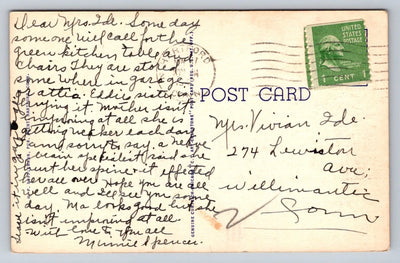 Dear Mrs. Ide. Some day
some one will call for the
green kitchen table and
chairs They are stored
some where in garage
or attic. Eddie sister is
trying it. Mother isn't
improving at all she is
getting weaker each day
am sorry to say, a nerve
brain specilist said she
hurt her spine + it effected
her all over. Hope you are all
well and I'll see you some
day. Ma looks good but she
isn't improving at all
with love to you all
Minnie Spencer.
POST CARD
UNITED STATES
POSTAGE
1 CENT 1
Mrs. Vivian Ide.
274 Lewiston
Ave;
Willimantic
Conn